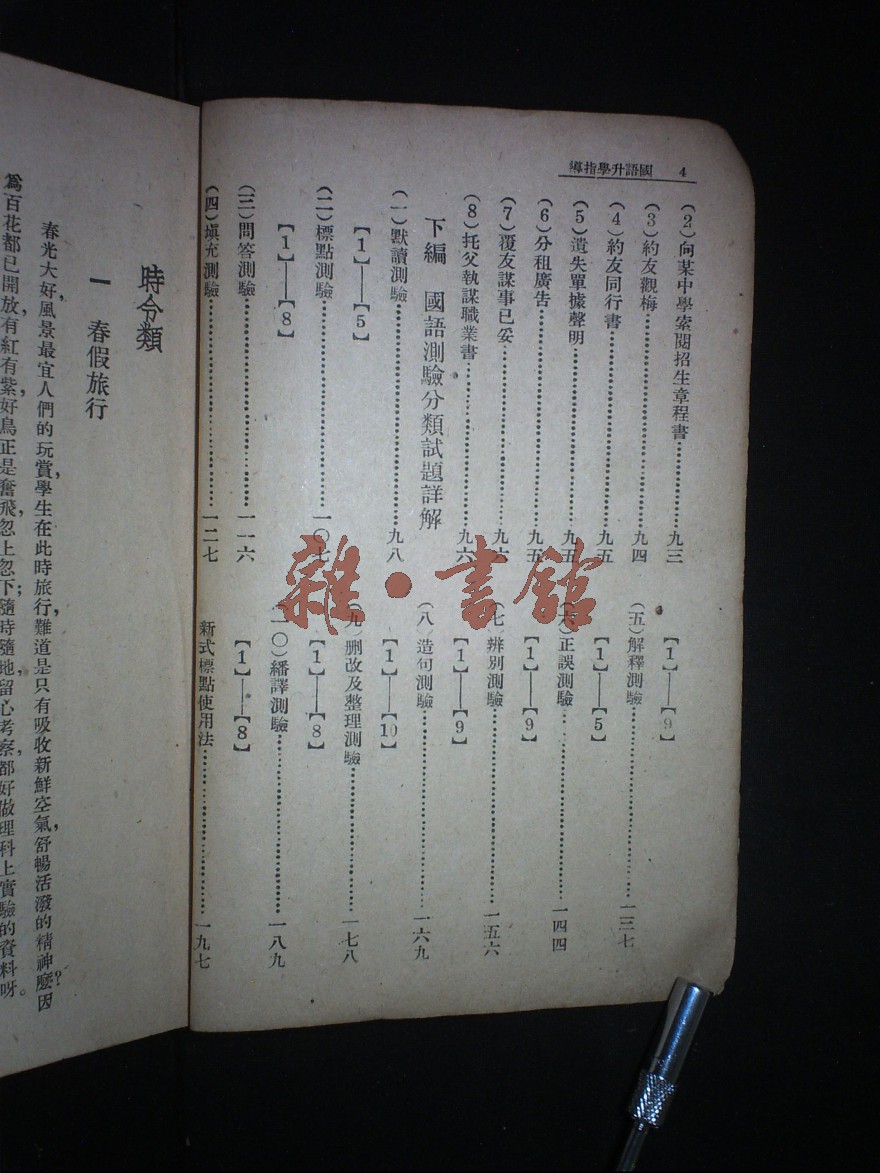 4 國語升學指導
(2)向某中學索閱招生章程書…………九三
(3)約友觀梅…………九四
(4)約友同行書…………九五
(5)遺失單據聲明…………九五
(6)分租廣告…………九五
(7)覆友謀事已妥…………九六
(8)托父執謀職業書…………九六
下編 國語測驗分類試題詳解
(一)默讀測驗…………九八
【1】——【5】
(二)標點測驗…………一〇七
【1】——【8】
(三)問答測驗…………一一六
(四)填充測驗…………一二七
【1】——【9】
(五)解釋測驗…………一三七
【1】——【5】
(六)正誤測驗…………一四四
【1】——【9】
(七)辨別測驗…………一五六
【1】——【9】
(八)造句測驗…………一六九
【1】——【10】
(九)刪改及整理測驗…………一七八
【1】——【8】
(一〇)繙譯測驗…………一八九
【1】——【8】
新式標點使用法…………一九七
時令類
一 春假旅行
春光大好,風景最宜人們的玩賞,學生在此時旅行,難道是只有吸收新鮮空氣,舒暢活潑的精神麽?因
爲百花都已開放,有紅有紫,好鳥正是奮飛,忽上忽下;隨時隨地,留心考察,都好做理科上實驗的資料呀。
雜·書館